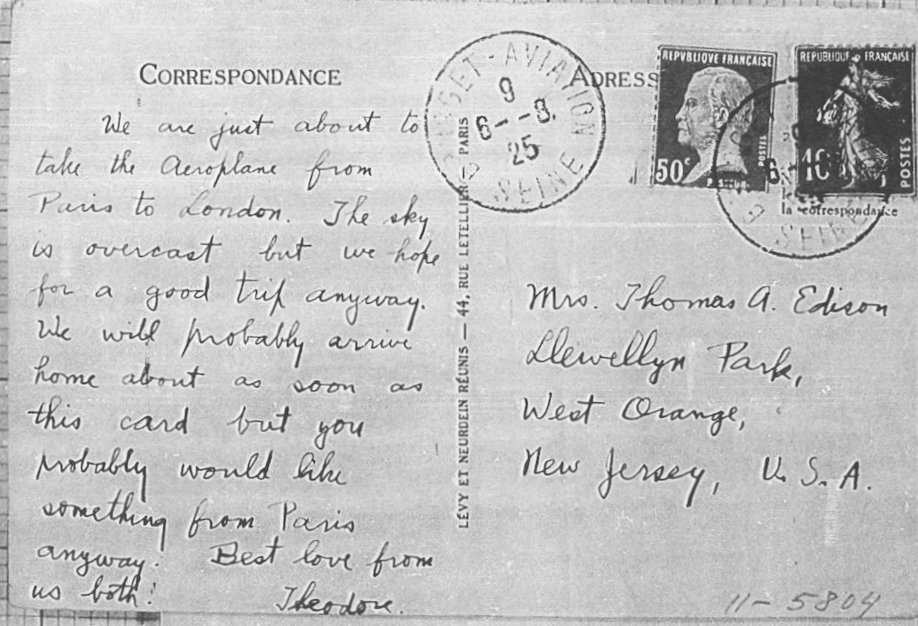 CORRESPONDANCE
We are just about to
take the Aeroplane from
Paris to London. The sky
is overcast but we hope
for a good trip anyway.
We will probably arrive
home about as soon as
this card but you
probably would like
something from Paris
anyway. Best love from
us both!
Theodore.
LÉVY ET NEURDEIN RÉUNIS — 44, RUE LETELLIER — PARIS
BOURGET-AVIATION
9
6--8.
25
SEINE
ADRESS
REPUBLIQUE FRANÇAISE
50c
POSTES
REPUBLIQUE FRANÇAISE
10
POSTES
6
SEINE
la correspondance
Mrs. Thomas A. Edison
Llewellyn Park,
West Orange,
New Jersey, U.S.A.
11-5804